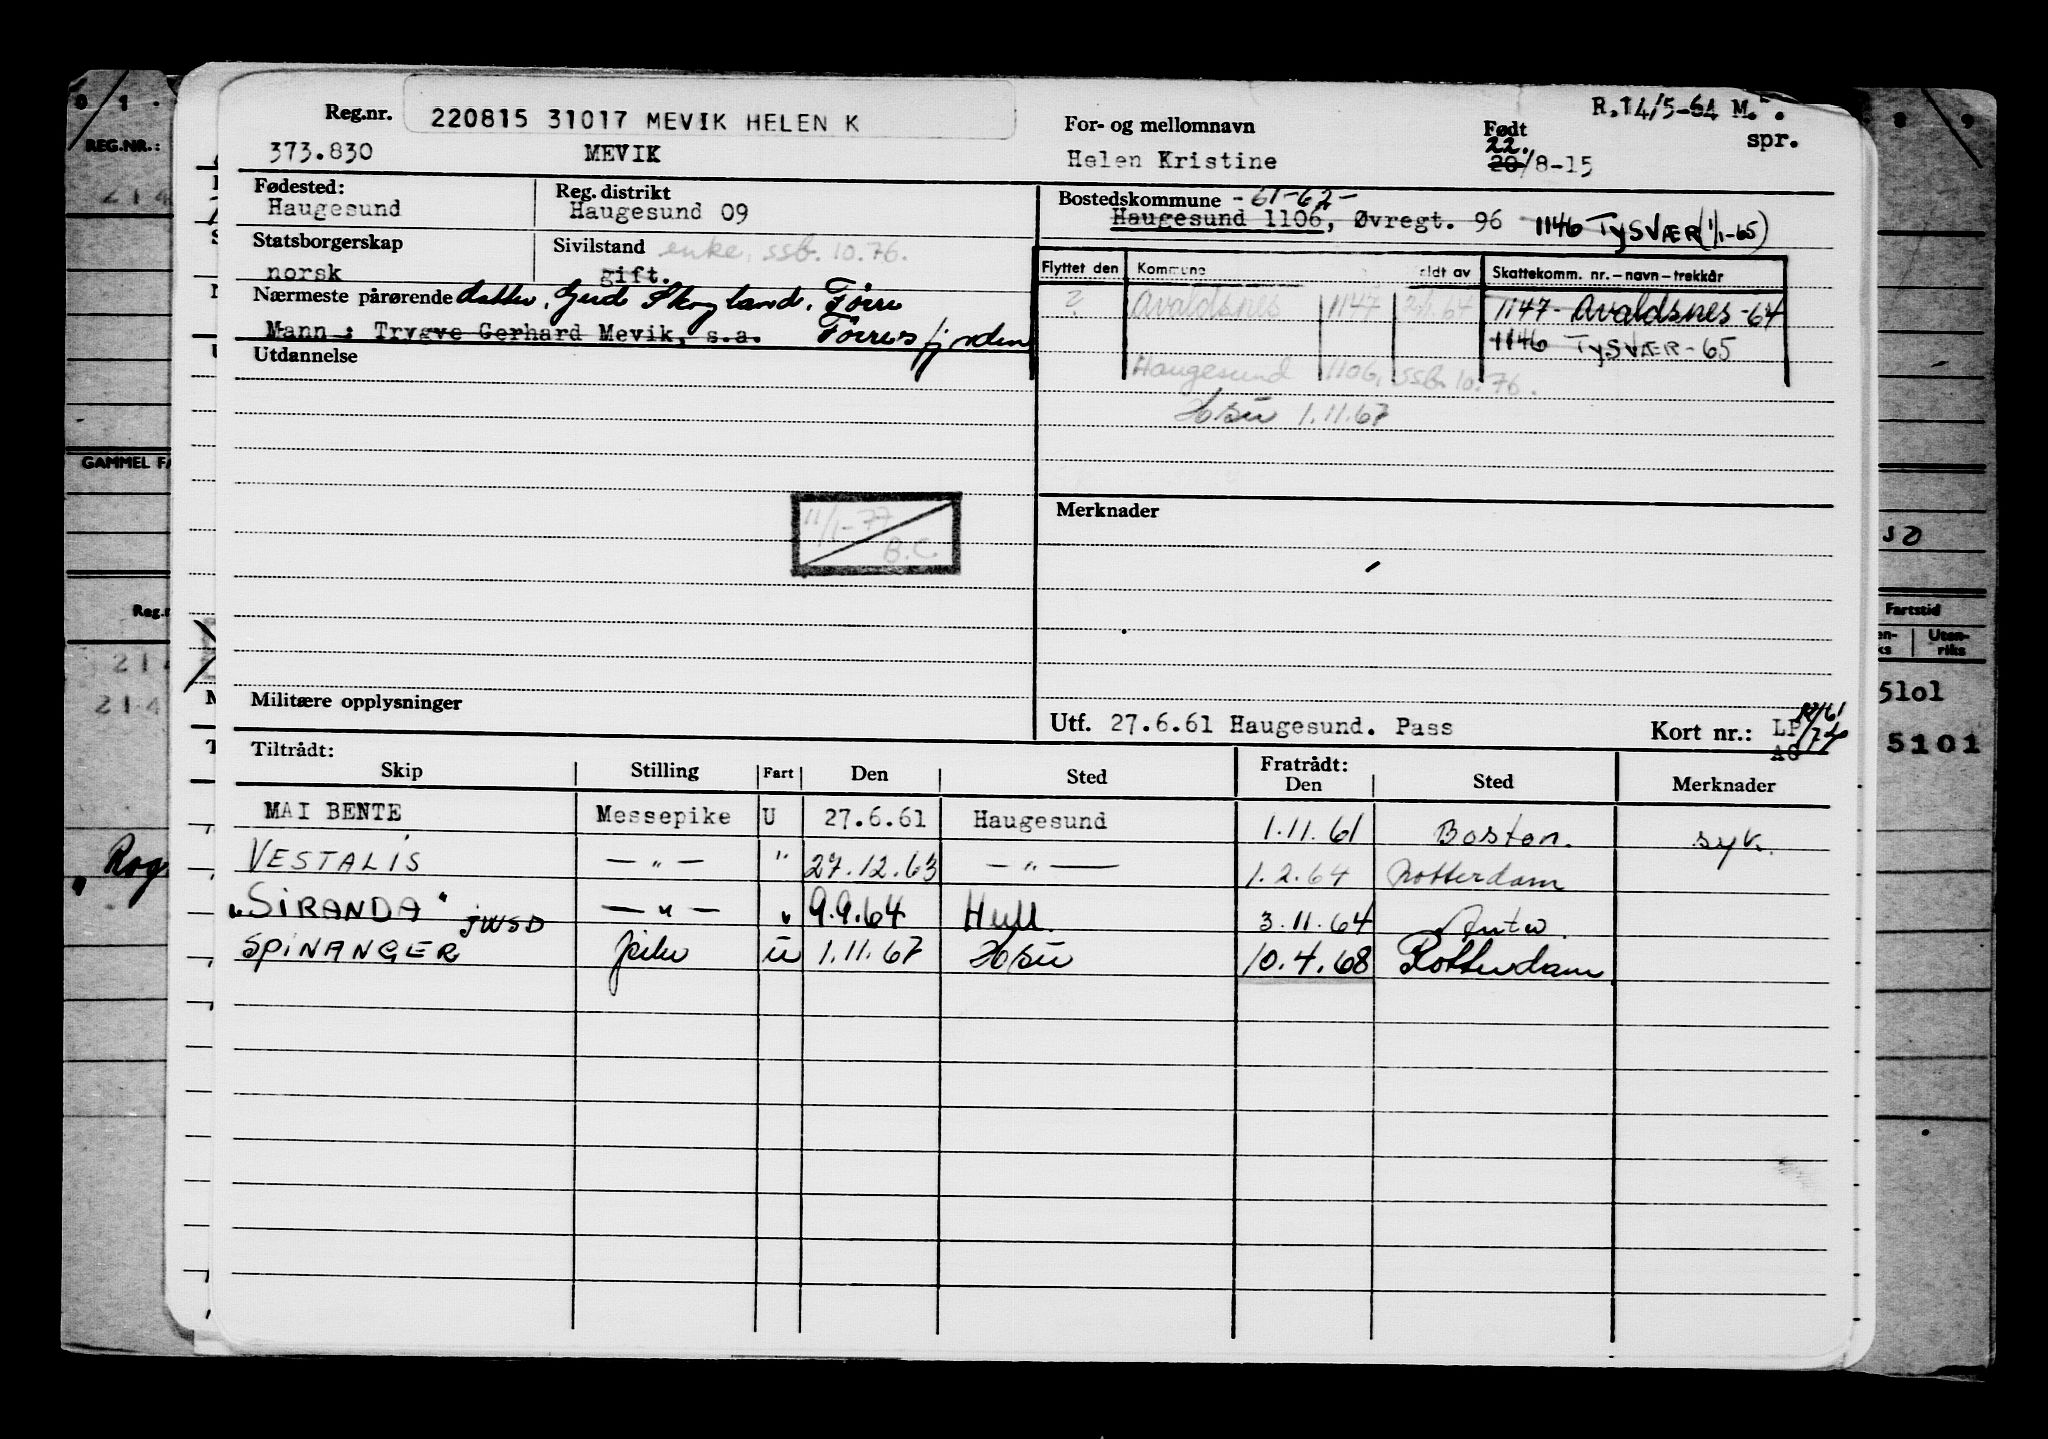 R.14/5-64 M.
Reg.nr. 220815 31017 MEVIK HELEN K
For- og mellomnavn
Født
spr.
373.830 MEVIK
Helen Kristine
22.
20/8-15
Fødested:
Haugesund
Reg. distrikt
Haugesund 09
Bostedskommune -61-62-
Haugesund 1106, Øvregt. 96 1146 TYSVÆR (1/1-65)
Statsborgerskap
norsk
Sivilstand enke, ssb. 10.76.
gift.
Flyttet den Kommune Meldt av Skattekomm. nr.-navn-trekkår
? Avaldsnes 1147 64 1147- Avaldsnes -64
1146 TYSVÆR-65
Haugesund 1106, ssb. 10.76.
1.11.67
Nærmeste pårørende datter, Gerd Skogland, Førre
Mann : Trygve Gerhard Mevik, s.a. Førresfjorden
Utdannelse
11/1-77
B.C.
Merknader
Militære opplysninger
Utf. 27.6.61 Haugesund. Pass
Kort nr.: LP
AG
Tiltrådt:
Skip Stilling Fart Den Sted
Fratrådt:
Den Sted Merknader
MAI BENTE Messepike U 27.6.61 Haugesund 1.11.61 Boston. syk.
VESTALIS — " — " 27.12.63 — " — 1.2.64 Rotterdam
"SIRANDA" JWSD — " — " 9.9.64 Hull. 3.11.64 Antw.
SPINANGER pike u 1.11.67 10.4.68 Rotterdam
REG.NR.:
GAMMEL
Fartstid
Uten-
riks
5101
5101
Rog